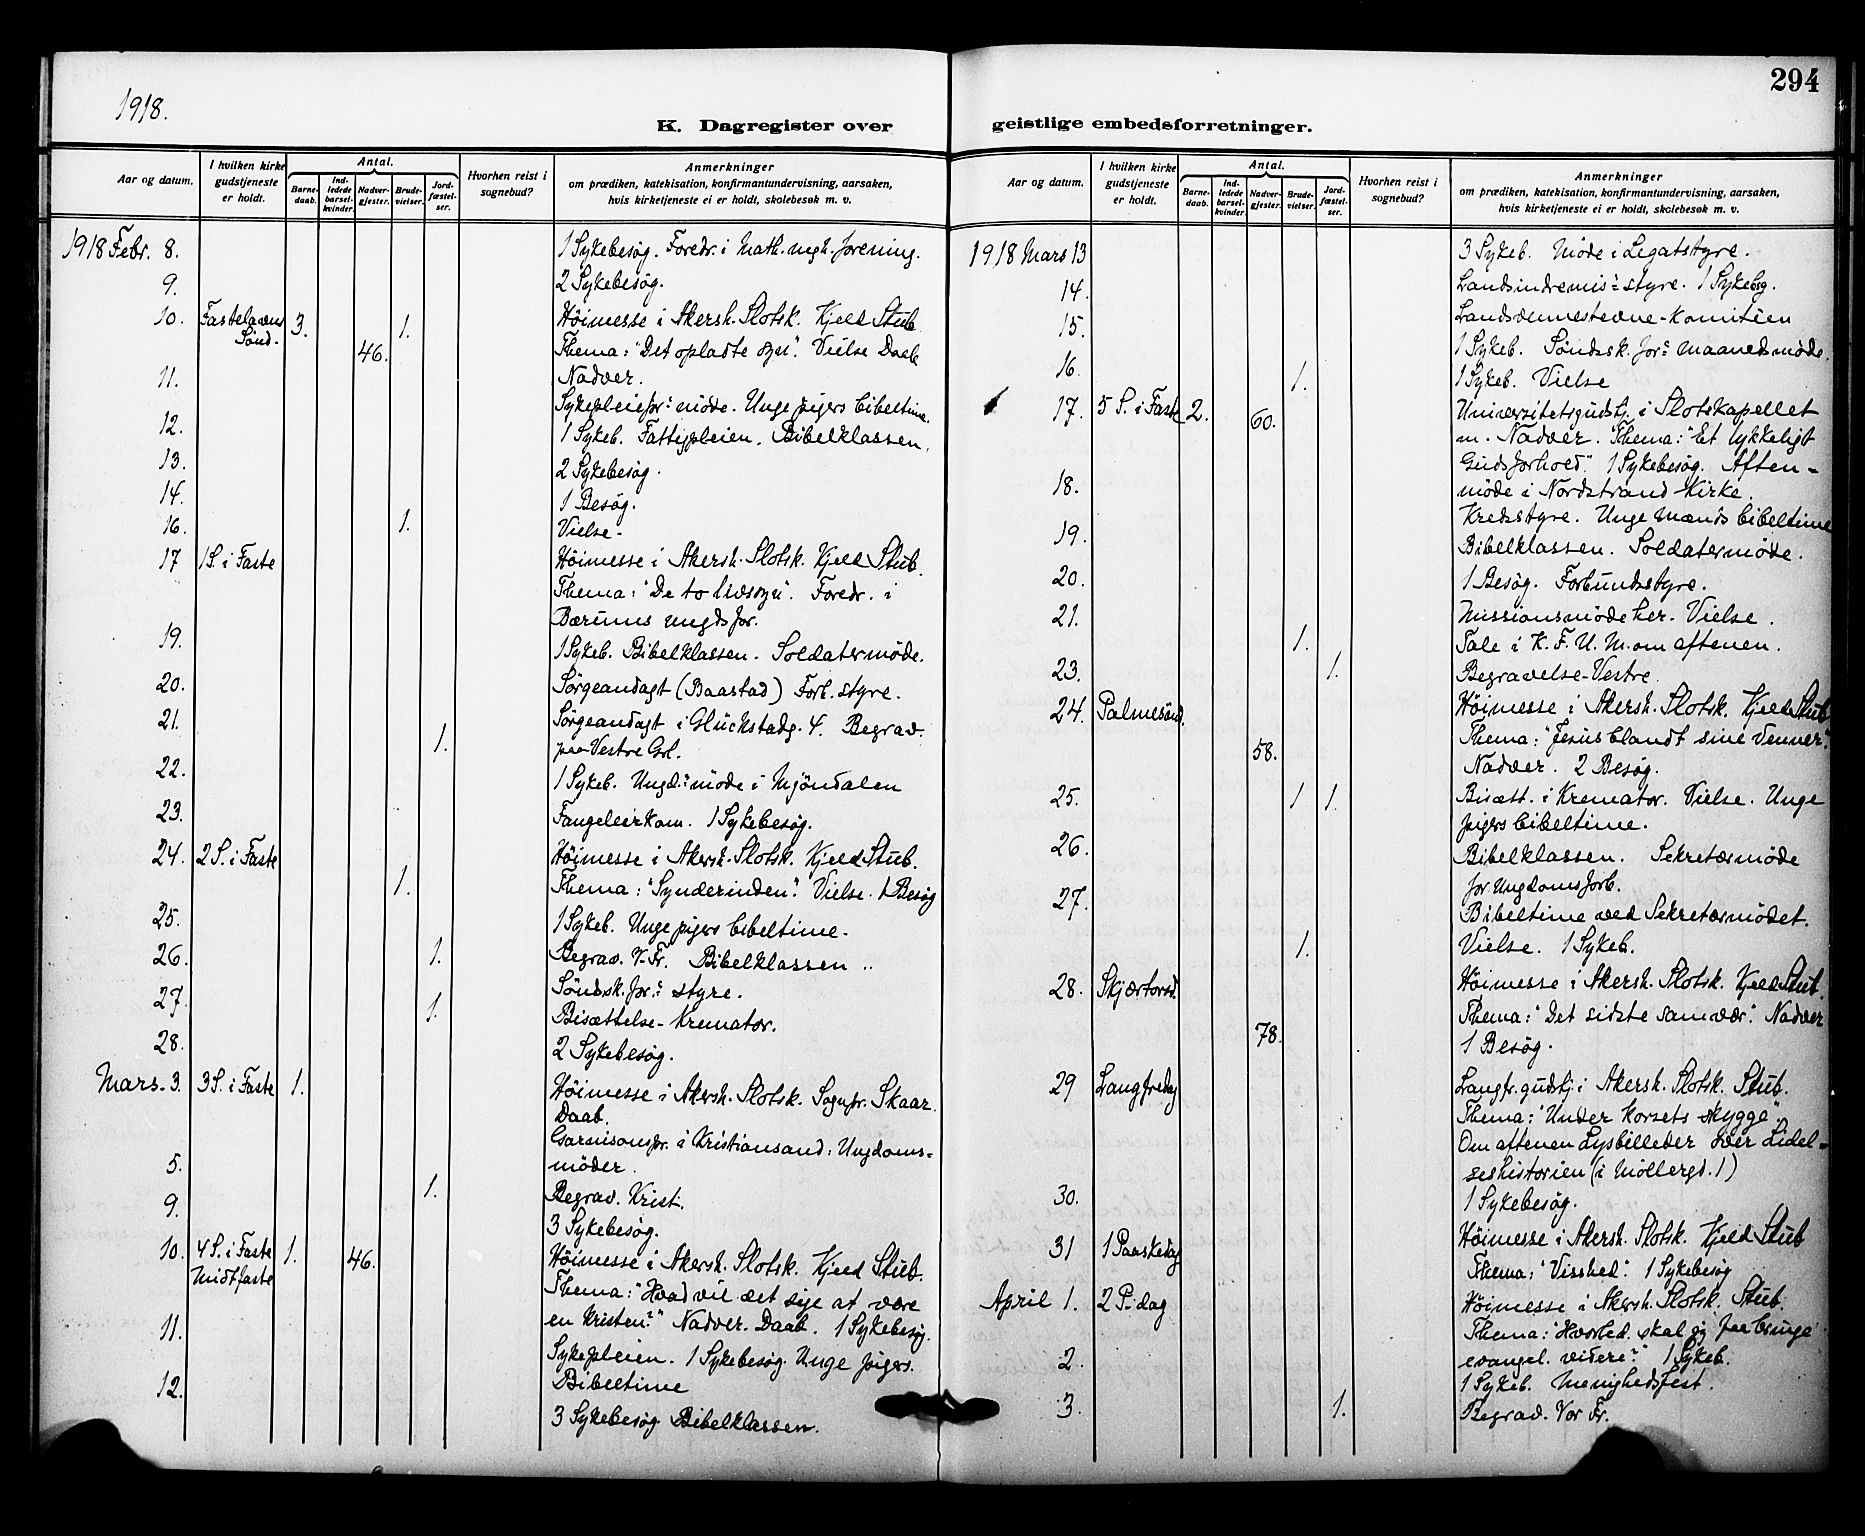 294
1918.
K. Dagregister over geistlige embedsforretninger.
Aar og datum.
I hvilken kirke gudstjeneste er holdt.
Antal.
Barne-daab.
Ind-ledede barsel-kvinder.
Nadver-gjester.
Brude-vielser.
Jord-fæstel-ser.
Hvorhen reist i sognebud?
Anmerkninger
om prædiken, katekisation, konfirmantundervisning, aarsaken,
hvis kirketjeneste ei er holdt, skolebesøk m. v.
1918 Febr. 8. 1 Sykebesøg. Foredr. i Math. mgh. forening.
9. 2 Sykebesøg.
10. Fastelavns 3. 1. Höimesse i Akersh. Slotsk. Kjeld Stub
Sønd. 46. Thema: "Det opladte syn". Vielse Daab
Nadver.
11. Sykepleiefor: møde. Unge pigers bibeltime.
12. 1 Sykeb. Fattigpleien. Bibelklassen.
13. 2 Sykebesøg.
14. 1 Besøg.
16. 1. Vielse.
17 1 S. i Faste Höimesse i Akersh. Slotsk. Kjeld Stub.
Thema: "De to livssyn". Foredr. i
Bærums ungdsfor.
19. 1 Sykeb. Bibelklassen. Soldatermøde.
20. Sørgeandagt (Baastad) Forb. styre.
21. Sørgeandagt i Glückstadg. 4. Begrav.
1. paa Vestre Grl.
22. 1 Sykeb. Ungd.: møde i Mjöndalen
23. Fangeleirkom. 1 Sykebesøg.
24. 2 S. i Faste Höimesse i Akersh. Slotsk. Kjeld Stub.
1. Thema: "Synderinden". Vielse. 1 Besøg
25. 1 Sykeb. Unge pigers bibeltime.
26. 1. Begrav. V. Fr. Bibelklassen
27. Søndsk. for: styre.
1. Bisættelse. Kremator.
28. 2 Sykebesøg.
Mars. 3. 3 S. i Faste 1. Höimesse i Akersh. Slotsk. Sognpr. Skaar.
Daab.
Garnisonspr. i Kristiansand. Ungdoms=
5. møder.
1. Begrav. Krist.
9. 3 Sykebesøg.
10. 4 S. i Faste 1. 46. Höimesse i Akersh. Slotsk. Kjeld Stub.
Midtfaste Thema: "Hvad vil det sige at være
en Kristen?" Nadver. Daab. 1 Sykebesøg.
11. Sykepleien. 1 Sykebesøg. Unge pigers
Bibeltime
12. 3 Sykebesøg Bibelklassen.
Aar og datum.
I hvilken kirke gudstjeneste er holdt.
Antal.
Barne-daab.
Ind-ledede barsel-kvinder.
Nadver-gjester.
Brude-vielser.
Jord-fæstel-ser.
Hvorhen reist i sognebud?
Anmerkninger
om prædiken, katekisation, konfirmantundervisning, aarsaken,
hvis kirketjeneste ei er holdt, skolebesøk m. v.
1918 Mars 13 3 Sykeb. Møde i Legatstyre.
14. Landsindremis: styre. 1 Sykebsg.
15. Landsvennestevne-Komitéen
1 Sykeb. Søndsk. for: maanedsmøde.
16. 1. 1 Sykeb. Vielse
17. 5 S. i Faste 2. 60. Universitetsgudstj. i Slotskapellet
m. Nadver. Thema: "Et lykkeligt
Gudsforhold." 1 Sykebesøg. Aften-
18. møde i Nordstrand Kirke.
Kredsstyre. Unge Mænds bibeltime
19. Bibelklassen. Soldatermøde.
20. 1 Besøg. Forbundsstyre.
21. Missionsmøde her. Vielse.
1. Tale i K. F. U. M. om aftenen.
23. 1. Begravelse-Vestre.
24. Palmesönd. Höimesse i Akersh. Slotsk. Kjeld Stub
Thema: "Jesus blandt sine Venner".
58. Nadver. 2 Besøg.
25. 1 1. Bisætt. i Kremator. Vielse. Unge
pigers bibeltime.
26. Bibelklassen. Sekretærmøde
for Ungdomsforb.
27. Bibeltime ved Sekretærmødet.
1. Vielse. 1 Sykeb.
28. Skjærtorsd. Höimesse i Akersh. Slotsk. Kjeld Stub.
Thema: "Det sidste samvær". Nadver
78. 1 Besøg.
29 Langfredag Langfr. gudstj. i Akersh. Slotsk. Stub.
Thema: "Under korsets skygge".
Om aftenen Lysbilleder over Lidel=
seshistorien (i Möllergd. 1)
30. 1 Sykebesøg.
31 1 Paaskedag Höimesse i Akersh. Slotsk. Kjeld Stub
Thema: "Visshed". 1 Sykebesøg
April 1. 2 P. dag Höimesse i Akersh. Slotsk. Stub.
Thema: "Hvorled. skal jeg faa bringe
evangel. videre?" 1 Sykeb.
2. 1 Sykeb. Menighedsfest.
3. 1. Begrav. Vor Fr.